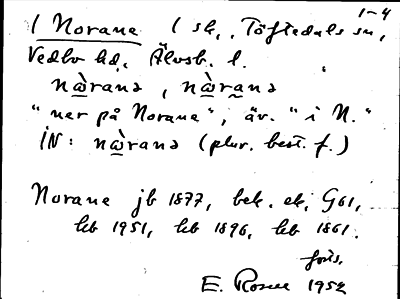 1-4
1 Norane 1 sk, Töftedals sn,
Vedbo hd, Älvsb. l.
nὰ̱ranə, nὰ̱ra̱nə
"ner på Norane", äv. "i N."
IN: nὰ̱ranə (plur. best. f.)
Norane jb 1877, bek. ek, G61,
kb 1951, kb 1896, kb 1861.
forts.
E. Rosell 1952